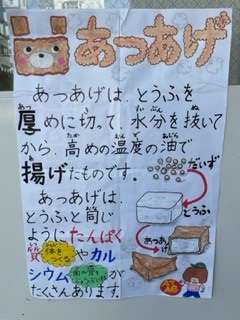 あつあげ
あつあげは、とうふを
厚めに切って、水分を抜いて
から、高めの温度の油で
揚げたものです。
だいず
とうふ
あつあげ
あつあげは、
とうふと同じ
ようにたんぱく
質やカル
体をつくる
シウムが
たくさんあります。